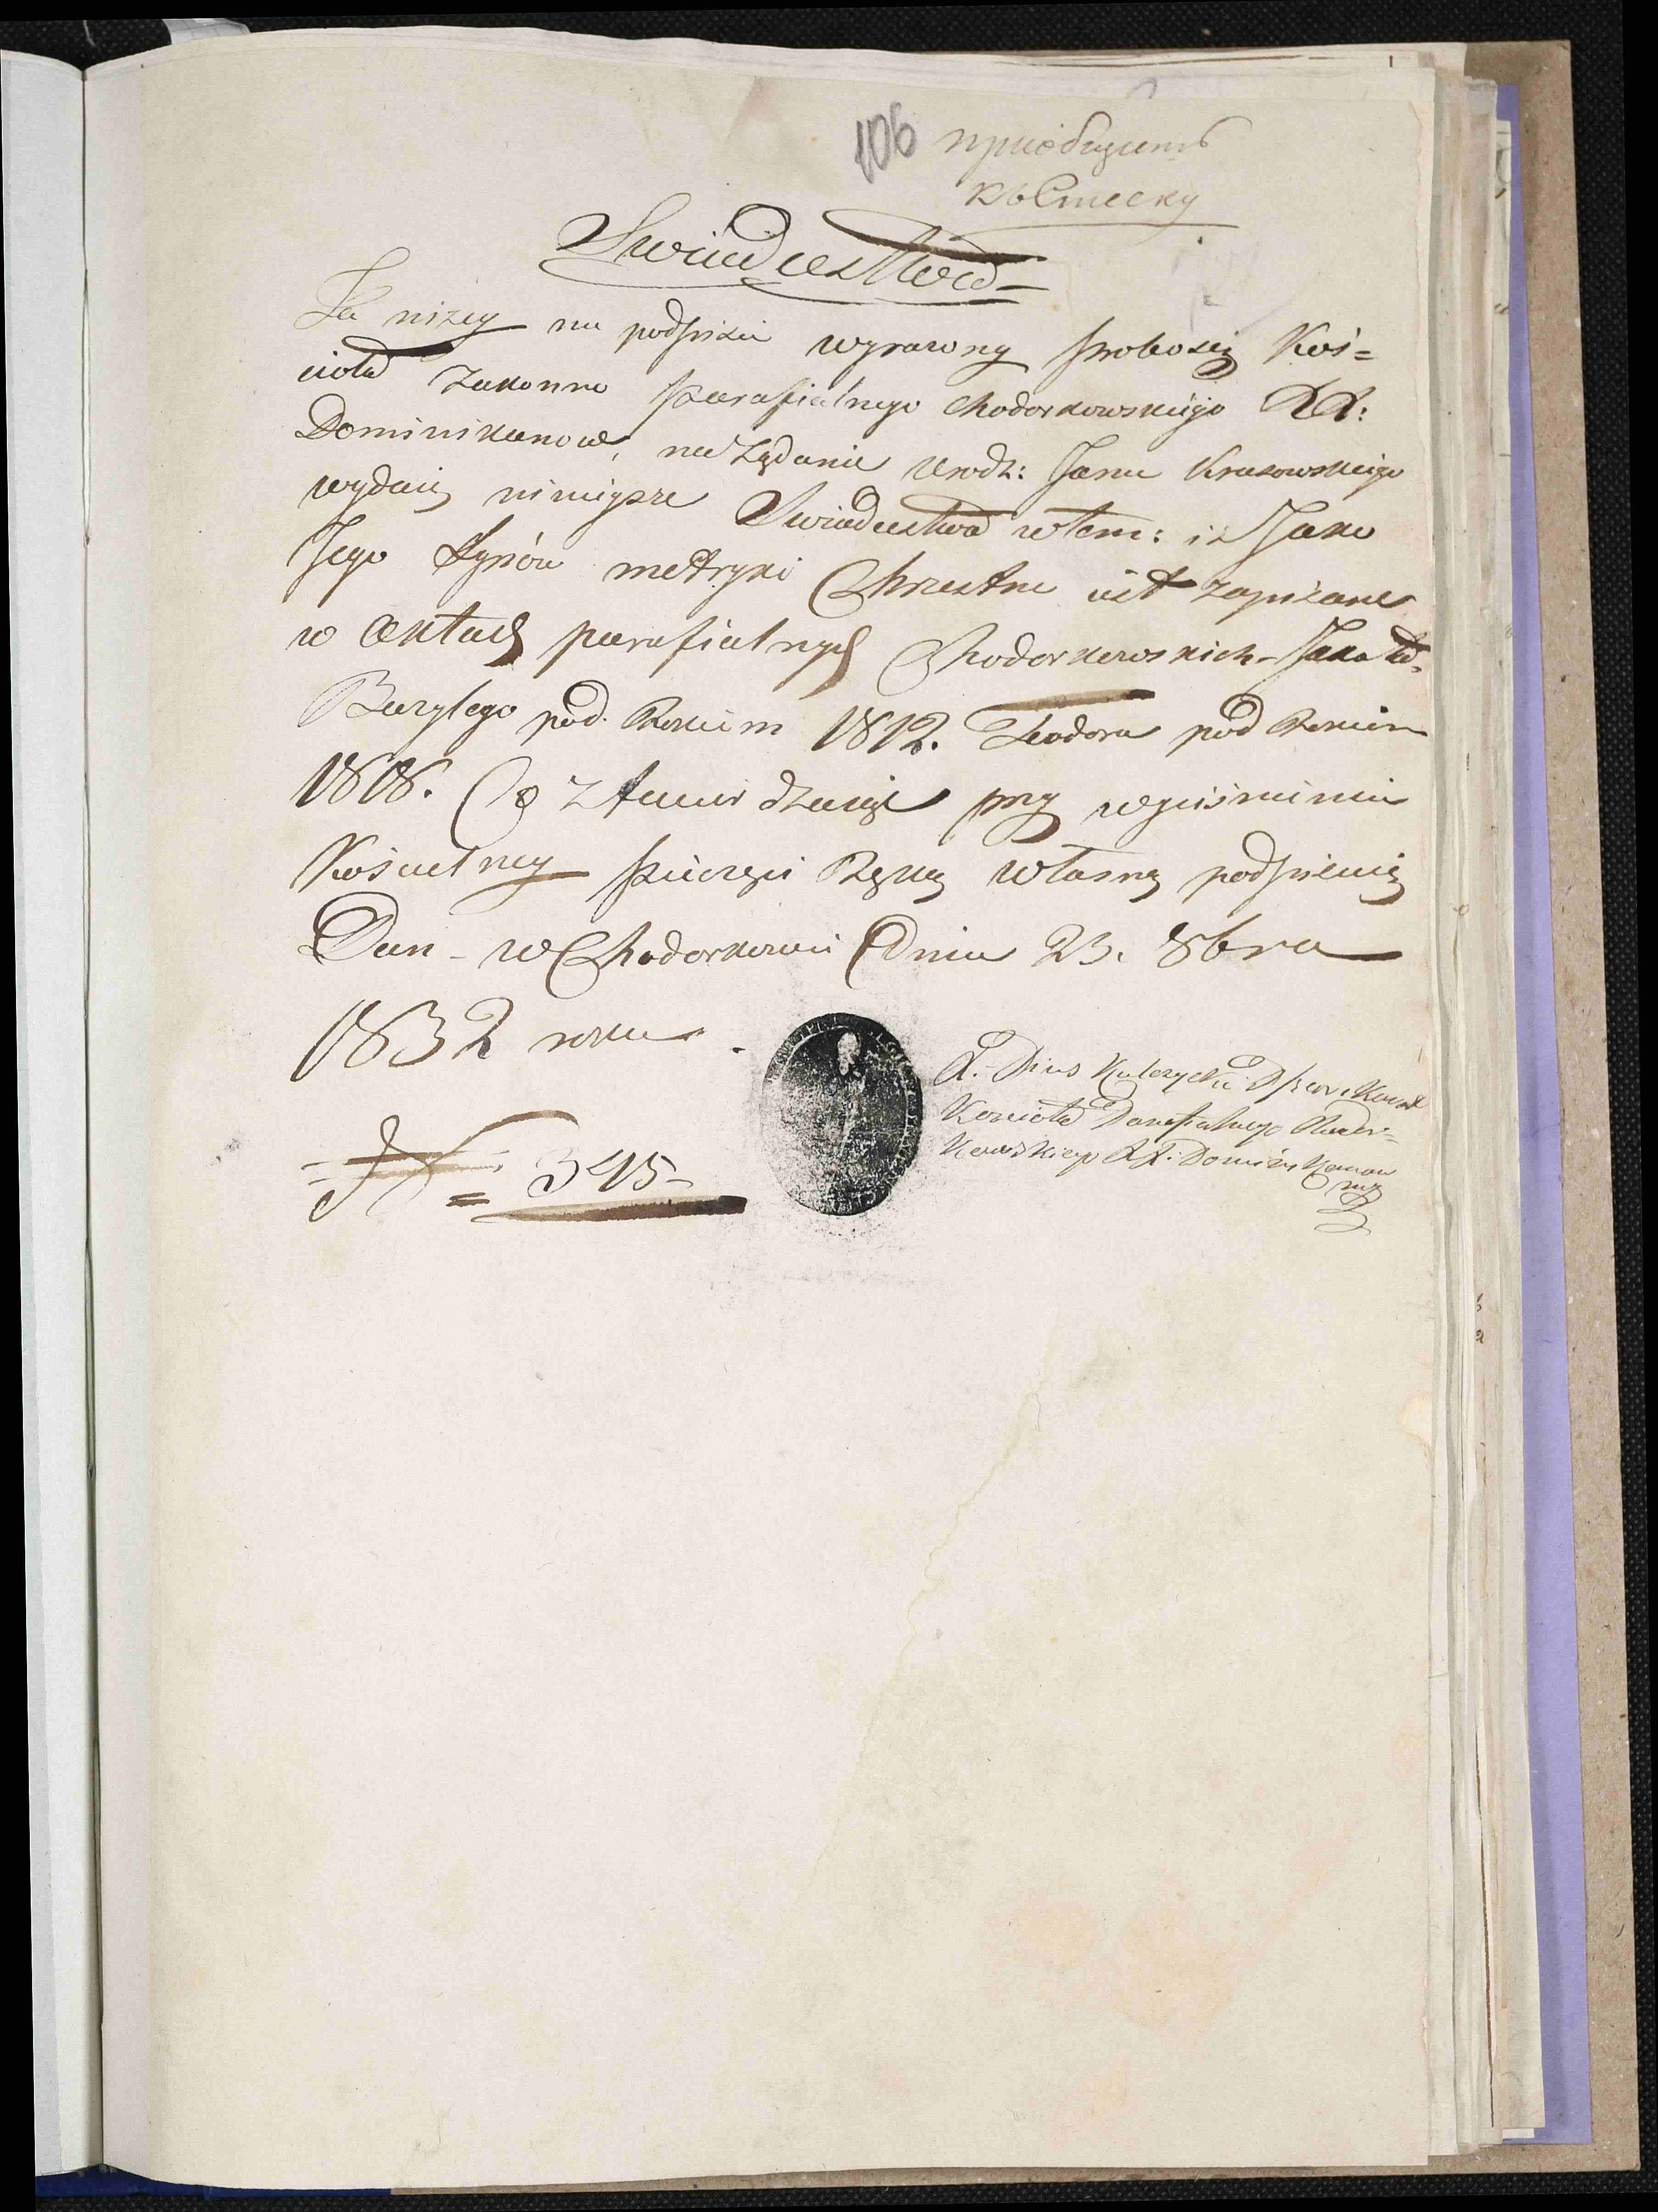 106 пріобщить
къ списку
Swiadectwo
Ja niżey na podpisie wyrażony Proboszcz Koś=
cioła Zakonno Parafialnego Chodorkowskiego XX:
Dominikanow, na Żądanie Urodz: Jana Krasowskiego
wydaię ninieysze Swiadectwo wtem: iż Jako
Jego Synów metryki Chrzestne iest zapisane
w Aktach parafialnych Chodorkowskich - Jako to
Bazylego pod Rokiem 1812. Teodora pod Rokiem
1818. Co ztwierdzaiąc przy wyciśnieniu
Kościelney Pieczęci Ręką własną podpisuię
Dan - w Chodorkowie Dnia 23. 8bra
1832 roku
X. Pius Kulczycki
Kościoła Parafialnego Chodor=
kowskiego XX: Dominikanow
mp
N = 345 -